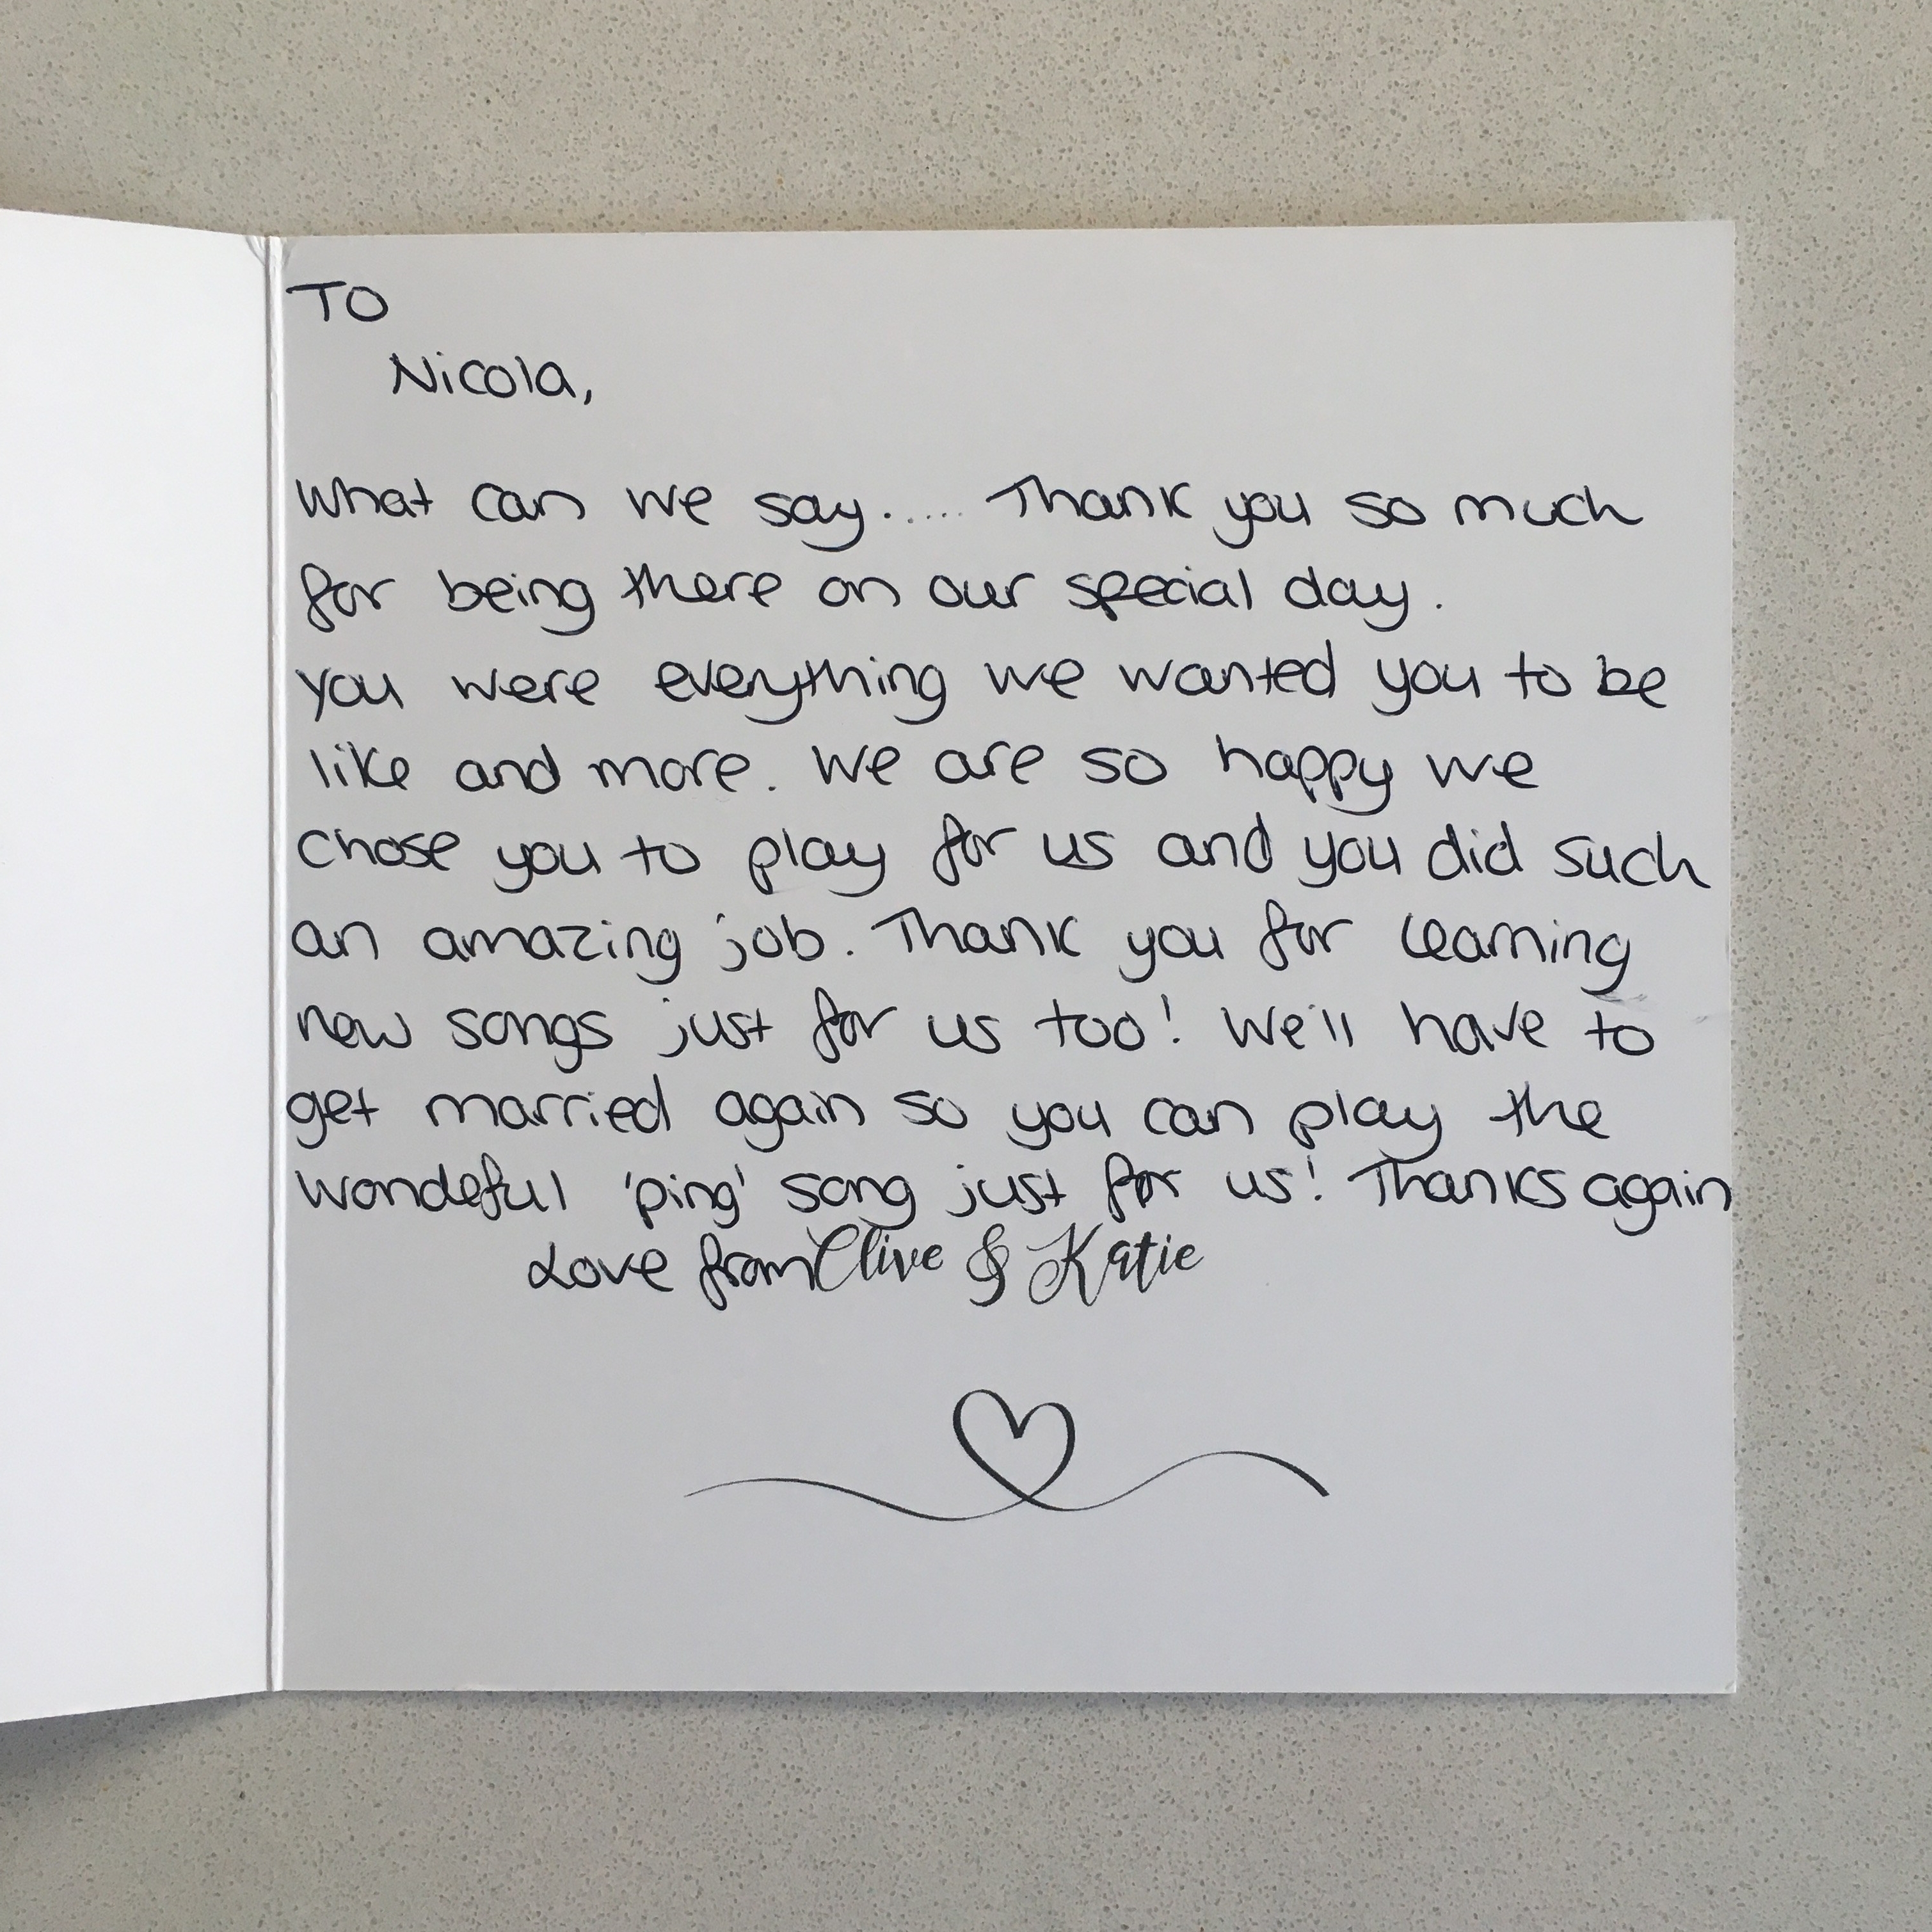 TO
Nicola,
What can we say...... Thank you so much
for being there on our special day.
You were everything we wanted you to be
like and more. We are so happy we
chose you to play for us and you did such
an amazing job. Thank you for learning
new songs just for us too! We'll have to
get married again so you can play the
wondeful 'ping' song just for us! Thanks again
Love from Clive & Katie